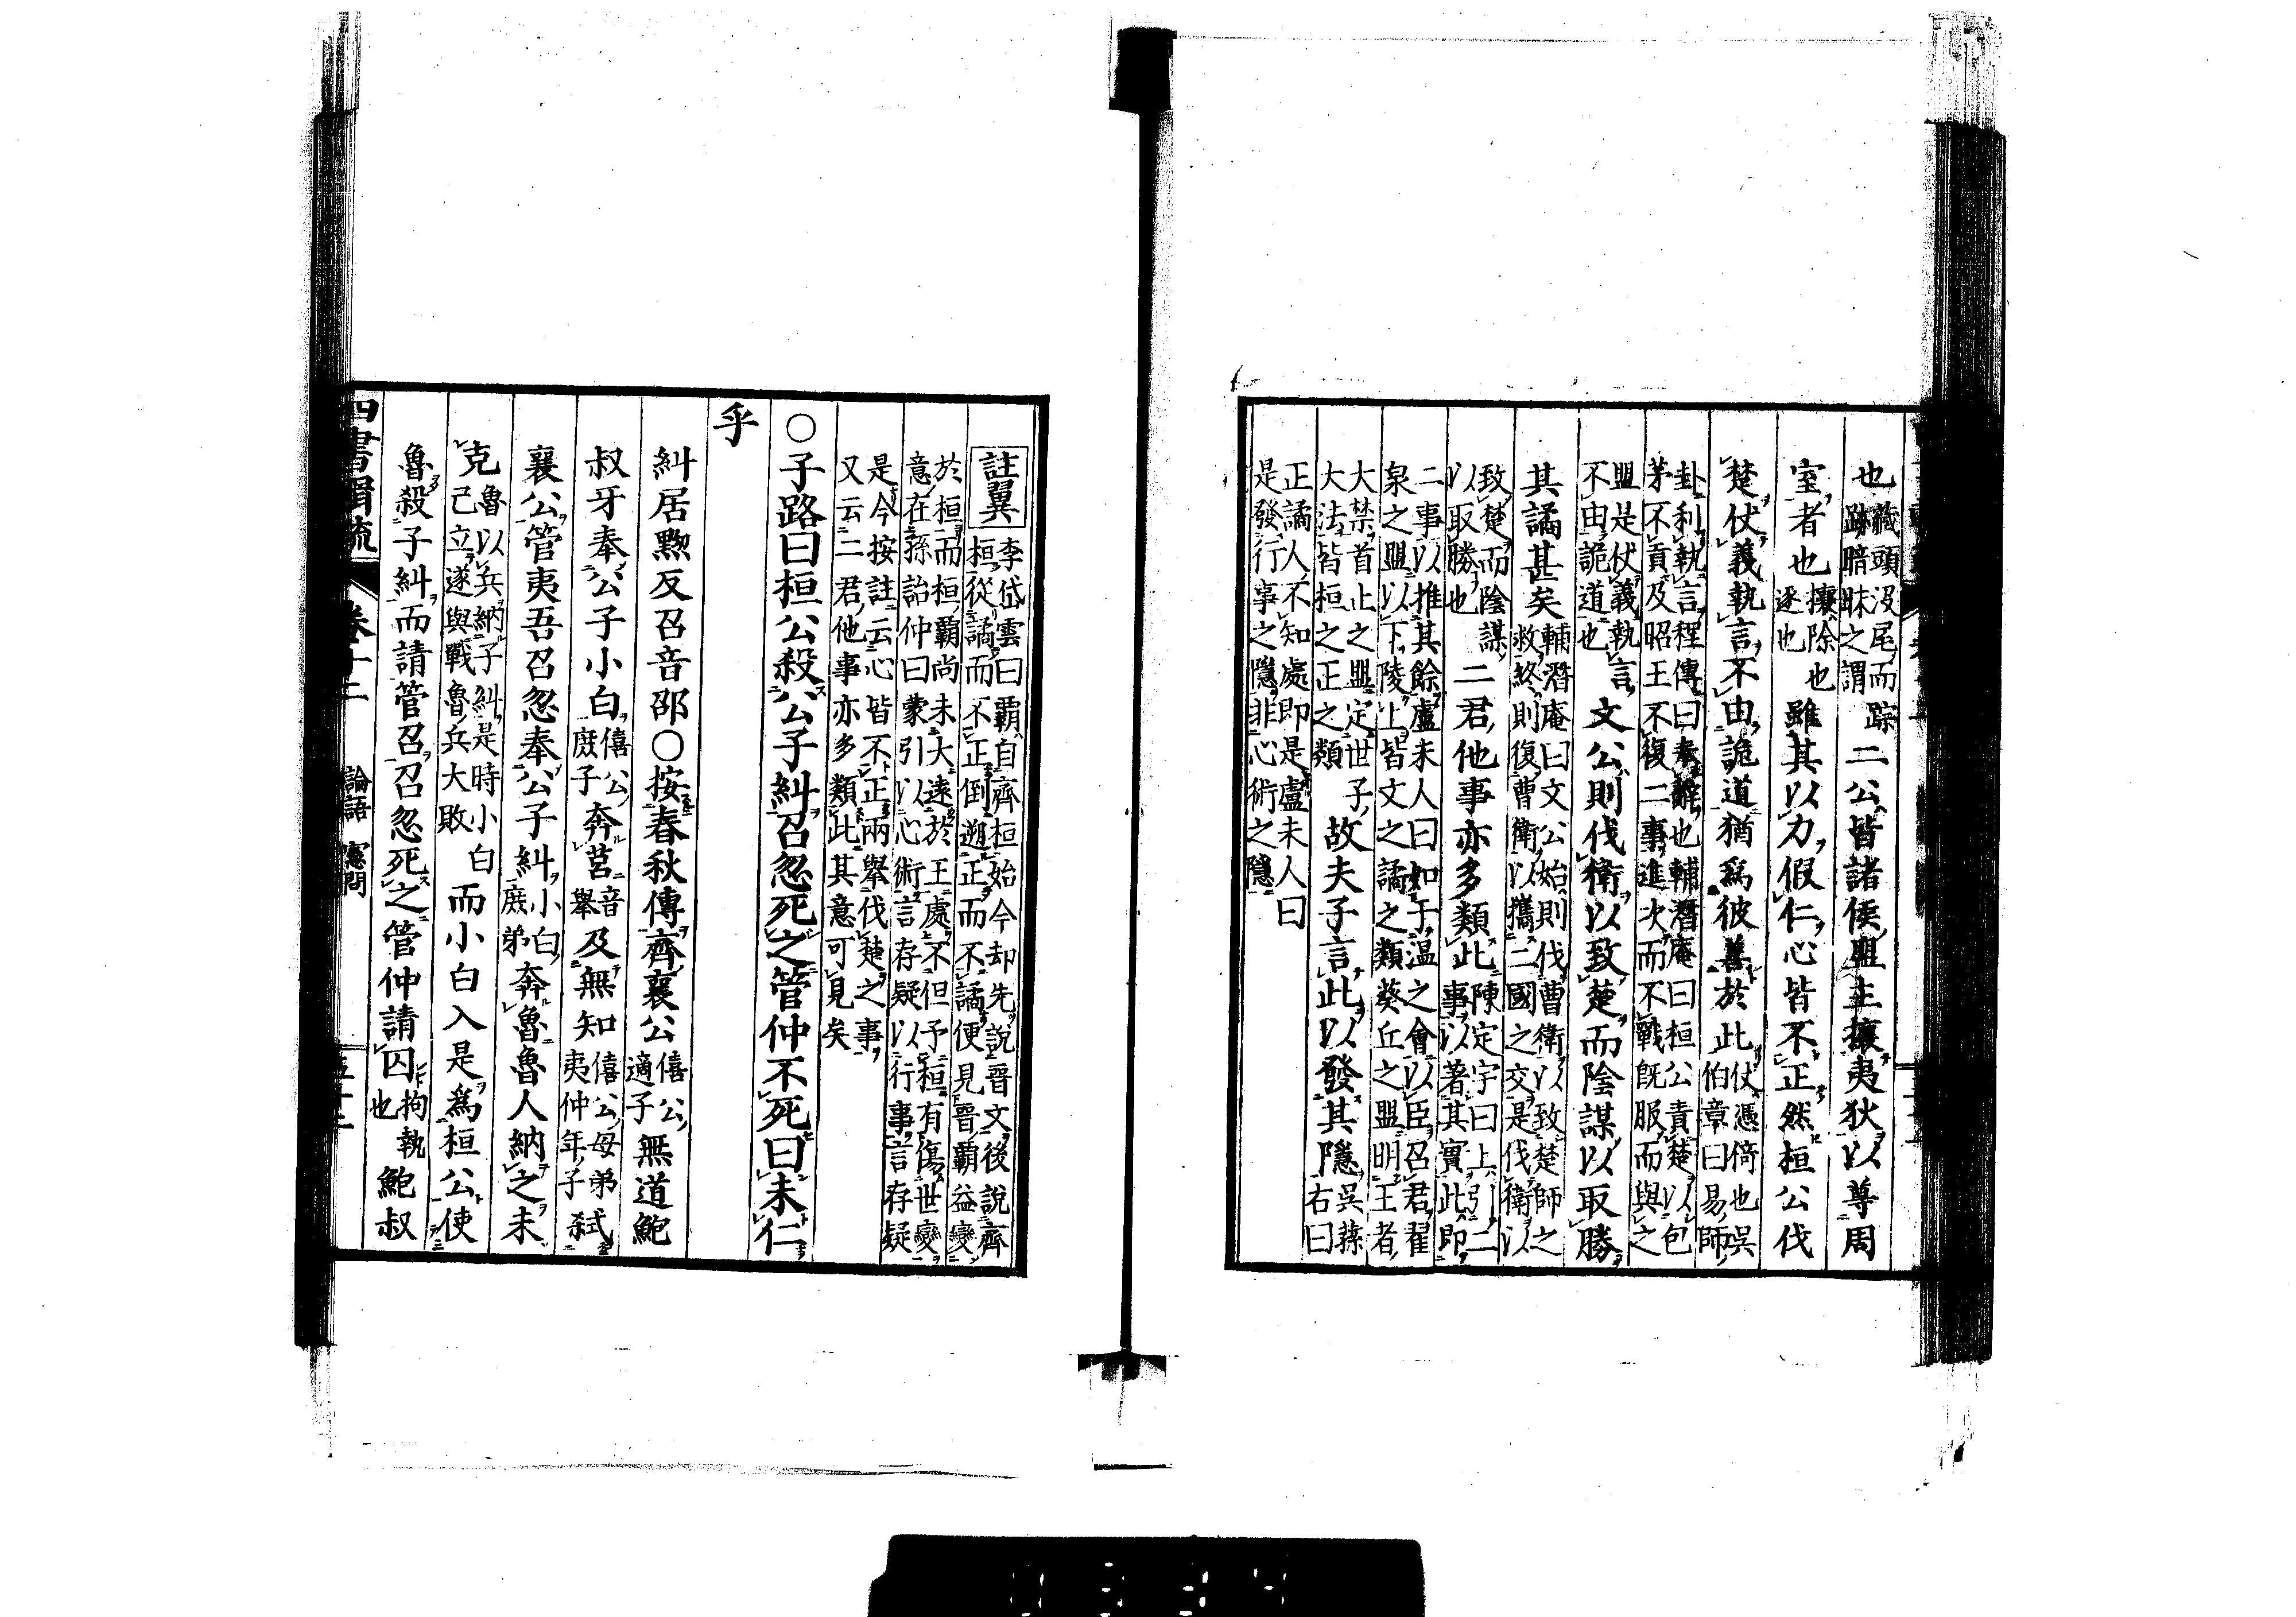 也藏頭没尾而踪跡暗昧之謂二公皆諸侯盟主攘夷狄以尊周
室者也攘除也逐也雖其以力假仁心皆不正然桓公伐
楚仗義執言不由詭道猶爲彼善於此仗憑倚也吳伯章曰易師
卦利執言程傳曰奉辭也輔潛庵曰桓公責楚以包
茅不貢及昭王不復二事進次而不戰既服而與之
盟是仗義執言不由詭道也文公則伐衛以致楚而陰謀以取勝
其譎甚矣輔潛庵曰文公始則伐曹衛以致楚師之救終則復曹衛以攜二國之交是伐衛以
致楚而陰謀以取勝也二君他事亦多類此陳定宇曰上引二事以著其實此即
二事以推其餘盧未人曰如于温之會以臣召君翟
泉之盟以下陵上皆文之譎之類葵丘之盟明王者
大禁首止之盟定世子大法皆桓之正之類故夫子言此以發其隱吳蓀右曰
正譎人不知處即是盧未人曰
是發行事之隱非心術之隱
註翼李岱雲曰覇自齊桓始今却先説晉文後説齊
桓從譎而不正倒遡正而不譎便見晉覇益變
於桓而桓覇尚未大遠於王處不但予桓有傷世變
意在孫詒仲曰蒙引以心術言存疑以行事言存疑
是今按註云心皆不正兩舉伐楚之事
又云二君他事亦多類此其意可見矣
○子路曰桓公殺公子糾召忽死之管仲不死曰未仁
乎
糾居黝反召音邵○按春秋傳齊襄公僖公適子無道鮑
叔牙奉公子小白僖公庶子奔莒音舉及無知僖公母弟夷仲年子弑
襄公管夷吾召忽奉公子糾小白庶弟奔魯魯人納之未
克魯以兵納子糾是時小白己立遂與戰魯兵大敗而小白入是爲桓公使
魯殺子糾而請管召召忽死之管仲請囚拘執也鮑叔
四書 卷十二 論語 憲問